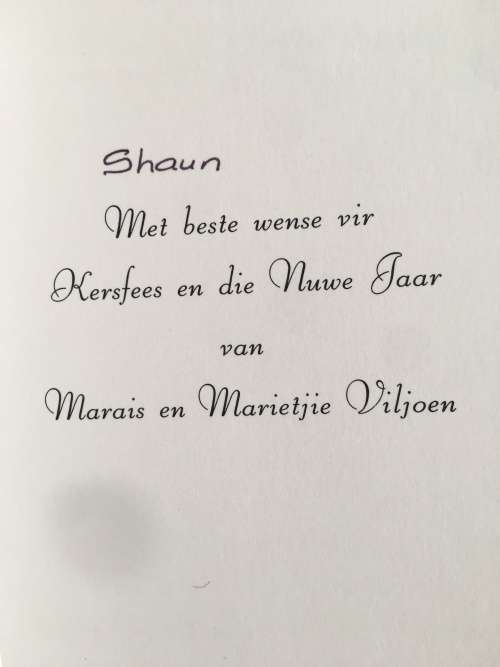 Shaun
Met beste wense vir
Kersfees en die Nuwe Jaar
van
Marais en Marietjie Viljoen